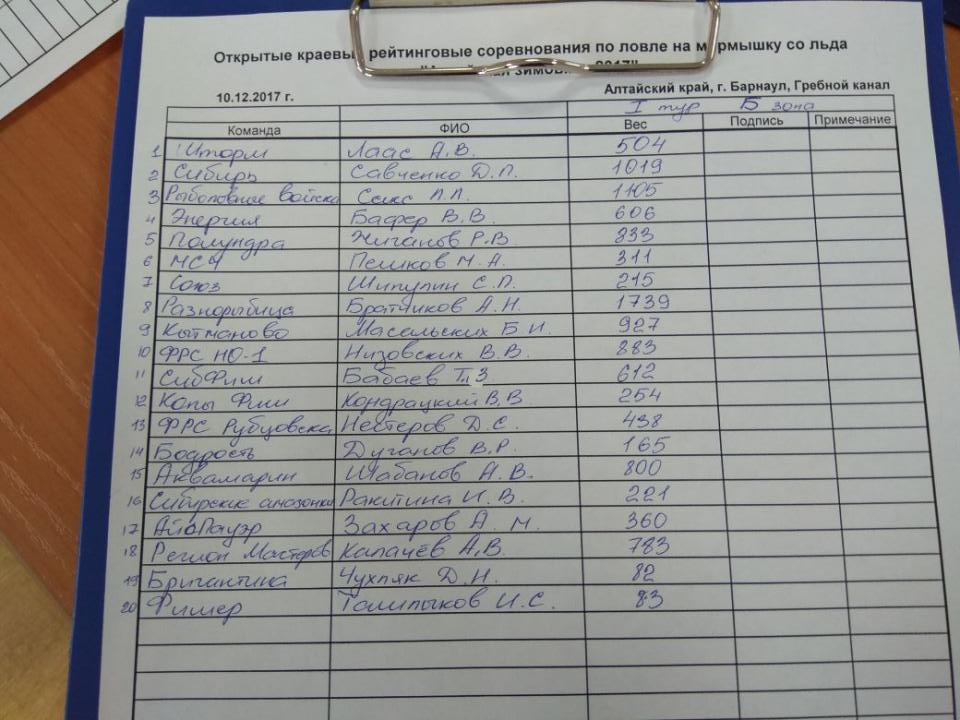 Открытые краевы рейтинговые соревнования по ловле на м рмышку со льда
10.12.2017 г. Алтайский край, г. Барнаул, Гребной канал
I тур Б зона
Команда ФИО Вес Подпись Примечание
1 Шторм Лаас А.В. 504
2 Сибирь Савченко Д.П. 1019
3 Рыболовные войска Секс П.П. 1105
4 Энергия Бафер В.В. 606
5 Полундра Жиганов Р.В. 833
6 МСЧ Пешков М.А. 311
7 Союз Шипулин С.П. 215
8 Разнорыбица Братчиков А.Н. 1739
9 Кытманово Масальских Б.И. 927
10 ФРС НО-1 Низовских В.В. 883
11 СибФиш Бабаев Т.З 612
12 Копы Фиш Кондрацкий В.В 254
13 ФРС Рубцовска Нестеров Д.С. 438
14 Бодрость Дуганов В.Р. 165
15 Аквамарин Шабанов А.В. 800
16 Сибирские амазонки Ракитина И.В. 221
17 АйсПауэр Захаров А.М. 360
18 Регион Мастеров Капачёв А.В. 783
19 Бригантина Чухпяк Д.Н. 82
20 Фишер Талипыков И.С. 83